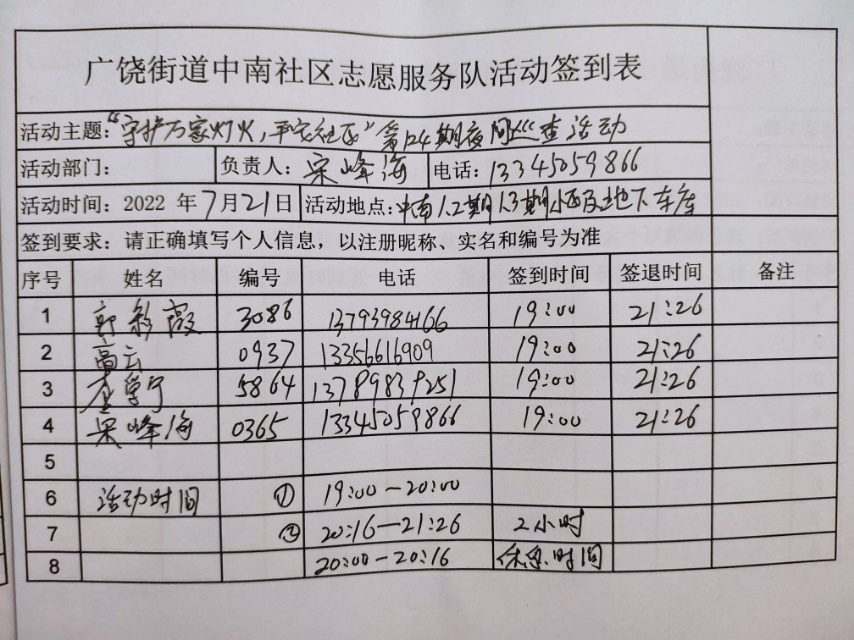 广饶街道中南社区志愿服务队活动签到表
活动主题：“守护万家灯火，平安社区”第124期夜间巡查活动
活动部门： 负责人：宋峰海 电话：13345059866
活动时间：2022 年7月21日 活动地点：中南1.2期1.3期小区及地下车库
签到要求：请正确填写个人信息，以注册昵称、实名和编号为准
序号 姓名 编号 电话 签到时间 签退时间 备注
1 郭彩霞 3086 13793984166 19:00 21:26
2 高云 0937 13356616909 19:00 21:26
3 5864 13789839251 19:00 21:26
4 宋峰海 0365 13345059866 19:00 21:26
5
6 活动时间 ① 19:00-20:00
7 ② 20:16-21:26 2小时
8 20:00-20:16 休息时间